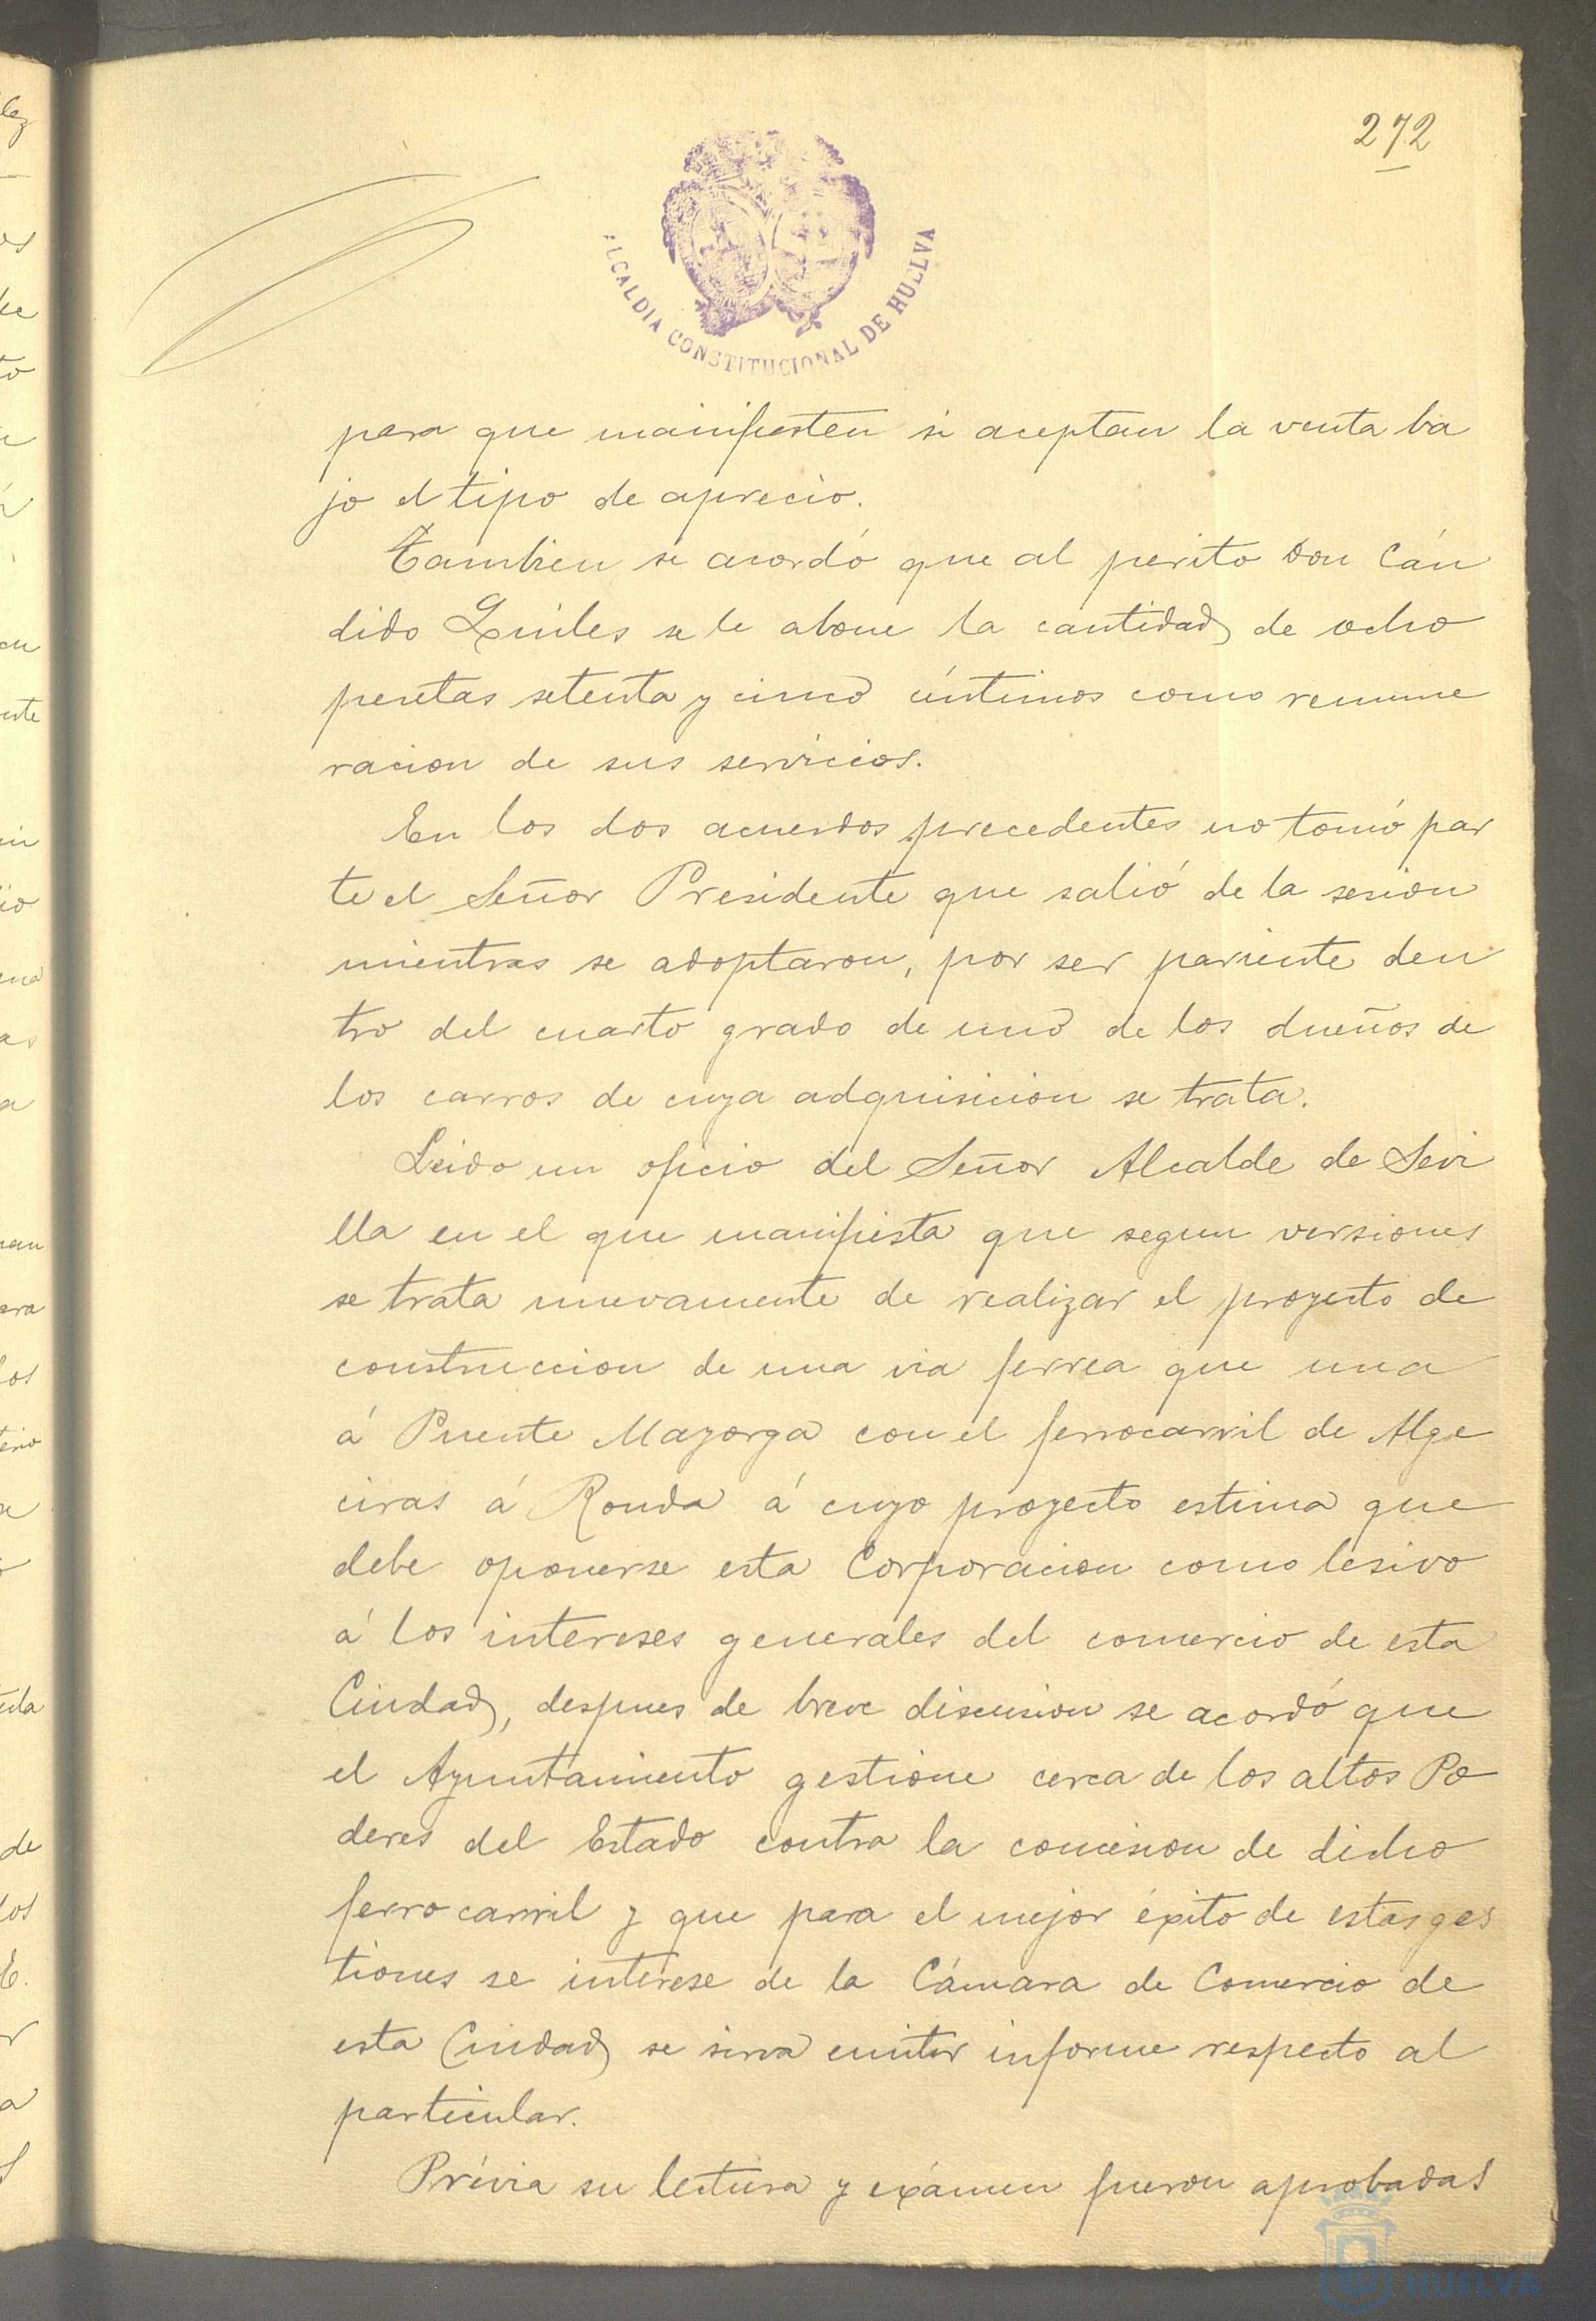 272
ALCALDIA CONSTITUCIONAL DE HUELVA
para que manifiesten si aceptan la venta ba
jo el tipo de aprecio.
Tambien se acordó que al perito Don Cán
dido Quiles se le abone la cantidad de ocho
pesetas setenta y cinco céntimos como remune
racion de sus servicios.
En los dos acuerdos precedentes no tomó par
te el Señor Presidente que salió de la sesion
mientras se adoptaron, por ser pariente den
tro del cuarto grado de uno de los dueños de
los carros de cuya adquisicion se trata.
Leido un oficio del Señor Alcalde de Sevi
lla en el que manifiesta que segun versiones
se trata nuevamente de realizar el proyecto de
construccion de una via ferrea que una
á Puente Mayorga con el ferrocarril de Alge
ciras á Ronda á cuyo proyecto estima que
debe oponerse esta Corporacion como lesivo
á los intereses generales del comercio de esta
Ciudad, despues de breve discusion se acordó que
el Ayuntamiento gestione cerca de los altos Po
deres del Estado contra la concesion de dicho
ferrocarril y que para el mejor éxito de estas ges
tiones se interese de la Cámara de Comercio de
esta Ciudad se sirva emitir informe respecto al
particular.
Prévia su lectura y exámen fueron aprobadas
HUELVA